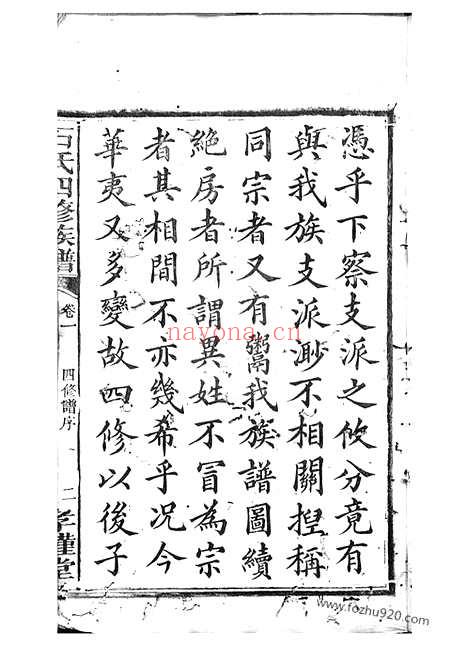 憑乎下察支派之攸分竟有
與我族支派渺不相關揑稱
同宗者又有鬻我族譜圖續
絶房者所謂異姓不冒為宗
者其相間不亦幾希乎況今
華夷又多變故四修以後子
石氏四修族譜
卷一
四修譜序
二
nayona.cn
www.fozhu920.com